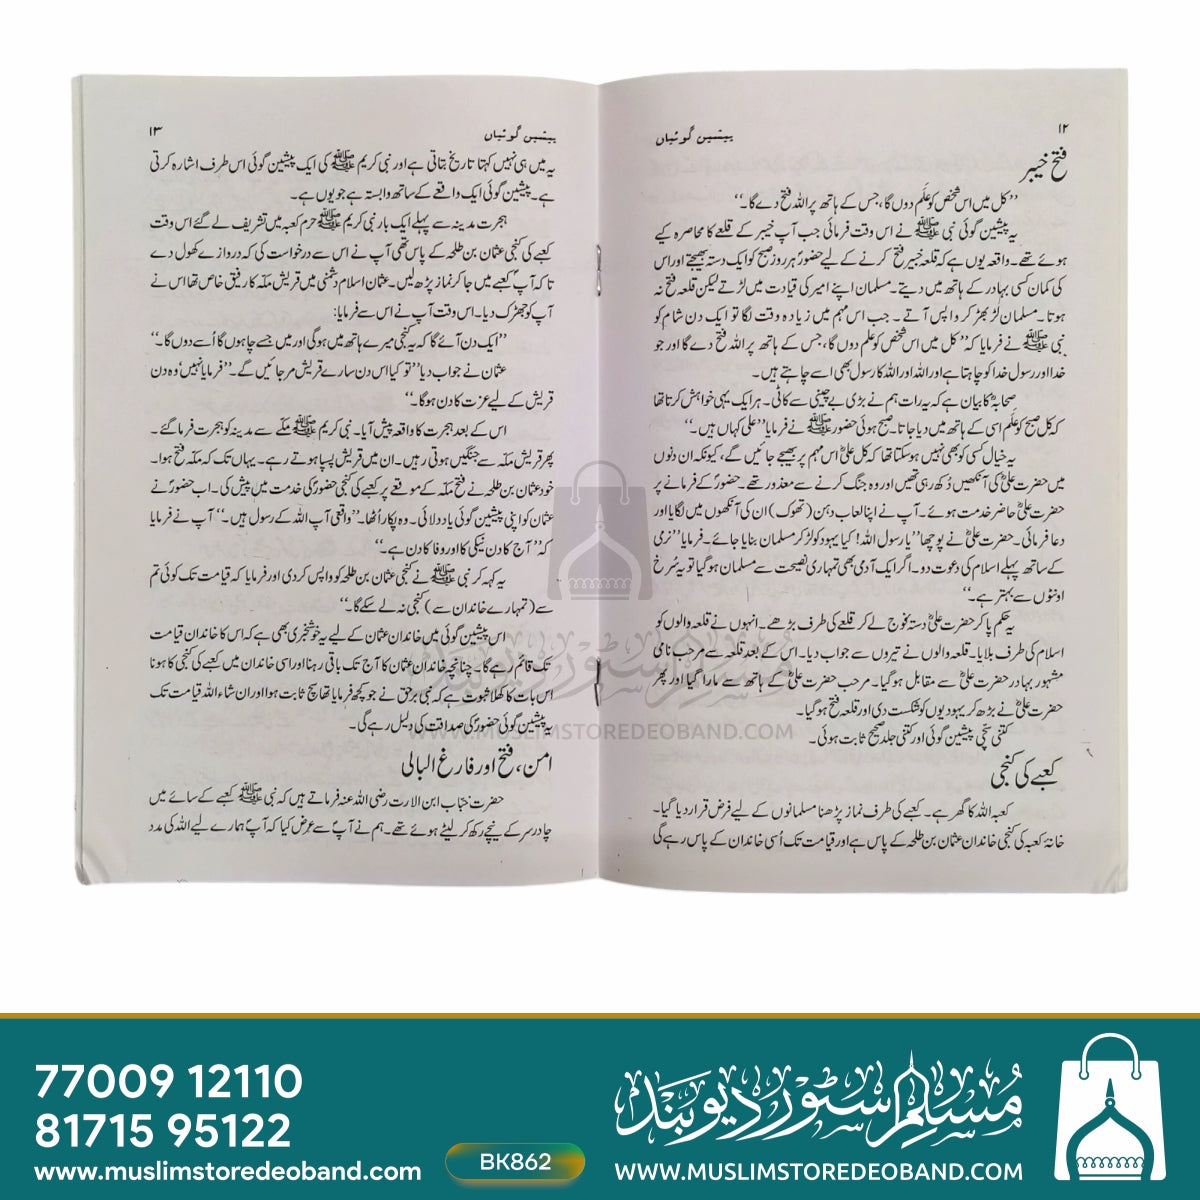 ۱۲
پیشین گوئیاں
فتح خیبر
’’کل میں اس شخص کو عَلَم دوں گا، جس کے ہاتھ پر اللہ فتح دے گا۔‘‘
یہ پیشین گوئی نبی ﷺ نے اس وقت فرمائی جب آپ خیبر کے قلعے کا محاصرہ کیے
ہوئے تھے۔ واقعہ یوں ہے کہ قلعہ خیبر فتح کرنے کے لیے حضورؐ ہر روز صبح کو ایک دستہ بھیجتے اور اس
کی کمان کسی بہادر کے ہاتھ میں دیتے۔ مسلمان اپنے امیر کی قیادت میں لڑتے لیکن قلعہ فتح نہ
ہوتا۔ مسلمان لڑ بھڑ کر واپس آتے۔ جب اس مہم میں زیادہ وقت لگا تو ایک دن شام کو
نبی ﷺ نے فرمایا کہ ’’کل میں اس شخص کو علم دوں گا، جس کے ہاتھ پر اللہ فتح دے گا اور جو
خدا اور رسول خدا کو چاہتا ہے اور اللہ اور اللہ کا رسول بھی اسے چاہتے ہیں۔
صحابہؓ کا بیان ہے کہ یہ رات ہم نے بڑی بے چینی سے کاٹی۔ ہر ایک یہی خواہش کرتا تھا
کہ کل صبح کو عَلَم اسی کے ہاتھ میں دیا جاتا۔ صبح ہوئی حضور ﷺ نے فرمایا ’’علی کہاں ہیں۔‘‘
یہ خیال کسی کو بھی نہیں ہوسکتا تھا کہ کل علیؓ اس مہم پر بھیجے جائیں گے، کیونکہ ان دنوں
میں حضرت علیؓ کی آنکھیں دُکھ رہی تھیں اور وہ جنگ کرنے سے معذور تھے۔ حضورؐ کے فرمانے پر
حضرت علیؓ حاضر خدمت ہوئے۔ آپ نے اپنا لعاب دہن (تھوک) ان کی آنکھوں میں لگایا اور
دعا فرمائی۔ حضرت علیؓ نے پوچھا ’’یا رسول اللہ! کیا یہود کو لڑ کر مسلمان بنایا جائے۔ فرمایا ’’نرمی
کے ساتھ پہلے اسلام کی دعوت دو۔ اگر ایک آدمی بھی تمہاری نصیحت سے مسلمان ہوگیا تو یہ سُرخ
اونٹوں سے بہتر ہے۔‘‘
یہ حکم پا کر حضرت علیؓ دستۂ فوج لے کر قلعے کی طرف بڑھے۔ انہوں نے قلعہ والوں کو
اسلام کی طرف بلایا۔ قلعہ والوں نے تیروں سے جواب دیا۔ اس کے بعد قلعہ سے مرحب نامی
مشہور بہادر حضرت علیؓ سے مقابل ہوگیا۔ مرحب حضرت علیؓ کے ہاتھ سے مارا گیا اور پھر
حضرت علیؓ نے بڑھ کر یہودیوں کو شکست دی اور قلعہ فتح ہوگیا۔
کتنی سچّی پیشین گوئی اور کتنی جلد صحیح ثابت ہوئی۔
کعبے کی کنجی
کعبہ اللہ کا گھر ہے۔ کعبے کی طرف نماز پڑھنا مسلمانوں کے لیے فرض قرار دیا گیا۔
خانۂ کعبہ کی کنجی خاندان عثمان بن طلحہ کے پاس ہے اور قیامت تک اُسی خاندان کے پاس رہے گی
پیشین گوئیاں
۱۳
یہ میں ہی نہیں کہتا تاریخ بتاتی ہے اور نبی کریم ﷺ کی ایک پیشین گوئی اس طرف اشارہ کرتی
ہے۔ پیشین گوئی ایک واقعے کے ساتھ وابستہ ہے جو یوں ہے۔
ہجرت مدینہ سے پہلے ایک بار نبی کریم ﷺ حرم کعبہ میں تشریف لے گئے اس وقت
کعبے کی کنجی عثمان بن طلحہ کے پاس تھی آپ نے اس سے درخواست کی کہ دروازے کھول دے
تا کہ آپؐ کعبے میں جا کر نماز پڑھ لیں۔ عثمان اسلام دشمنی میں قریش مکّہ کا رفیق خاص تھا اس نے
آپ کو جھڑک دیا۔ اس وقت آپ نے اس سے فرمایا:
’’ایک دن آئے گا کہ یہ کنجی میرے ہاتھ میں ہوگی اور میں جسے چاہوں گا اُسے دوں گا۔‘‘
عثمان نے جواب دیا ’’تو کیا اس دن سارے قریش مر جائیں گے۔‘‘ فرمایا نہیں ’وہ دن
قریش کے لیے عزت کا دن ہوگا۔‘‘
اس کے بعد ہجرت کا واقعہ پیش آیا۔ نبی کریم ﷺ مکّے سے مدینہ کو ہجرت فرما گئے۔
پھر قریش مکّہ سے جنگیں ہوتی رہیں۔ ان میں قریش پسپا ہوتے رہے۔ یہاں تک کہ مکّہ فتح ہوا۔
خود عثمان بن طلحہ نے فتح مکّہ کے موقعے پر کعبے کی کنجی حضورؐ کی خدمت میں پیش کی۔ اب حضورؐ نے
عثمان کو اپنی پیشین گوئی یاد دلائی۔ وہ پکار اُٹھا۔ ’’واقعی آپ اللہ کے رسول ہیں۔‘‘ آپ نے فرمایا
کہ ’’آج کا دن نیکی کا اور وفا کا دن ہے۔‘‘
یہ کہہ کر نبی ﷺ نے کنجی عثمان بن طلحہ کو واپس کردی اور فرمایا کہ قیامت تک کوئی تم
سے (تمہارے خاندان سے) کنجی نہ لے سکے گا۔‘‘
اس پیشین گوئی میں خاندان عثمان کے لیے یہ خوشخبری بھی ہے کہ اس کا خاندان قیامت
تک قائم رہے گا۔ چنانچہ خاندان عثمان کا آج تک باقی رہنا اور اسی خاندان میں کعبے کی کنجی کا ہونا
اس بات کا کھلا ثبوت ہے کہ نبی برحق نے جو کچھ فرمایا تھا سچ ثابت ہوا اور ان شاء اللہ قیامت تک
یہ پیشین گوئی حضورؐ کی صداقت کی دلیل رہے گی۔
امن، فتح اور فارغ البالی
حضرت خبّاب ابن الارت رضی اللہ عنہ فرماتے ہیں کہ نبی ﷺ کعبے کے سائے میں
چادر سر کے نیچے رکھ کر لیٹے ہوئے تھے۔ ہم نے آپؐ سے عرض کیا کہ آپؐ ہمارے لیے اللہ کی مدد
مسلم سٹور دیوبند
WWW.MUSLIMSTOREDEOBAND.COM
77009 12110
81715 95122
www.muslimstoredeoband.com
BK862
مسلم سٹور دیوبند
WWW.MUSLIMSTOREDEOBAND.COM